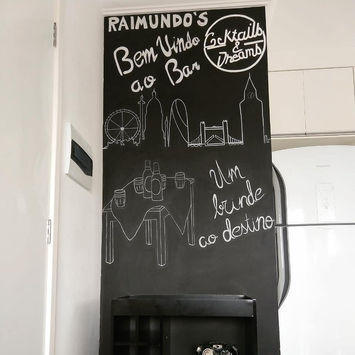 RAIMUNDO'S
Bem Vindo
ao Bar
Cocktails
&
Dreams
Um
brinde
ao destino